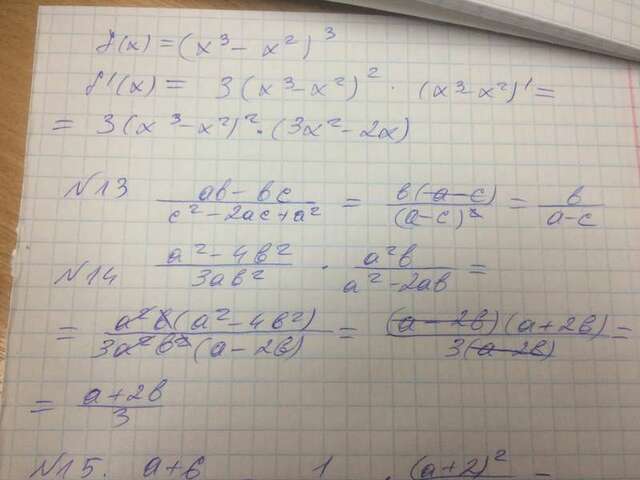 f(x) = (x³ - x²)³
f'(x) = 3(x³ - x²)² · (x³ - x²)' =
= 3(x³ - x²)² · (3x² - 2x)
N13 (ab - bc)/(c² - 2ac + a²) = b(a - c)/(a - c)² = b/(a - c)
N14 (a² - 4b²)/(3ab²) · (a²b)/(a² - 2ab) =
= a²b(a² - 4b²)/(3a²b²(a - 2b)) = (a - 2b)(a + 2b)/(3(a - 2b)) =
= (a + 2b)/3
N15. a + b 1 (a + 2)² =